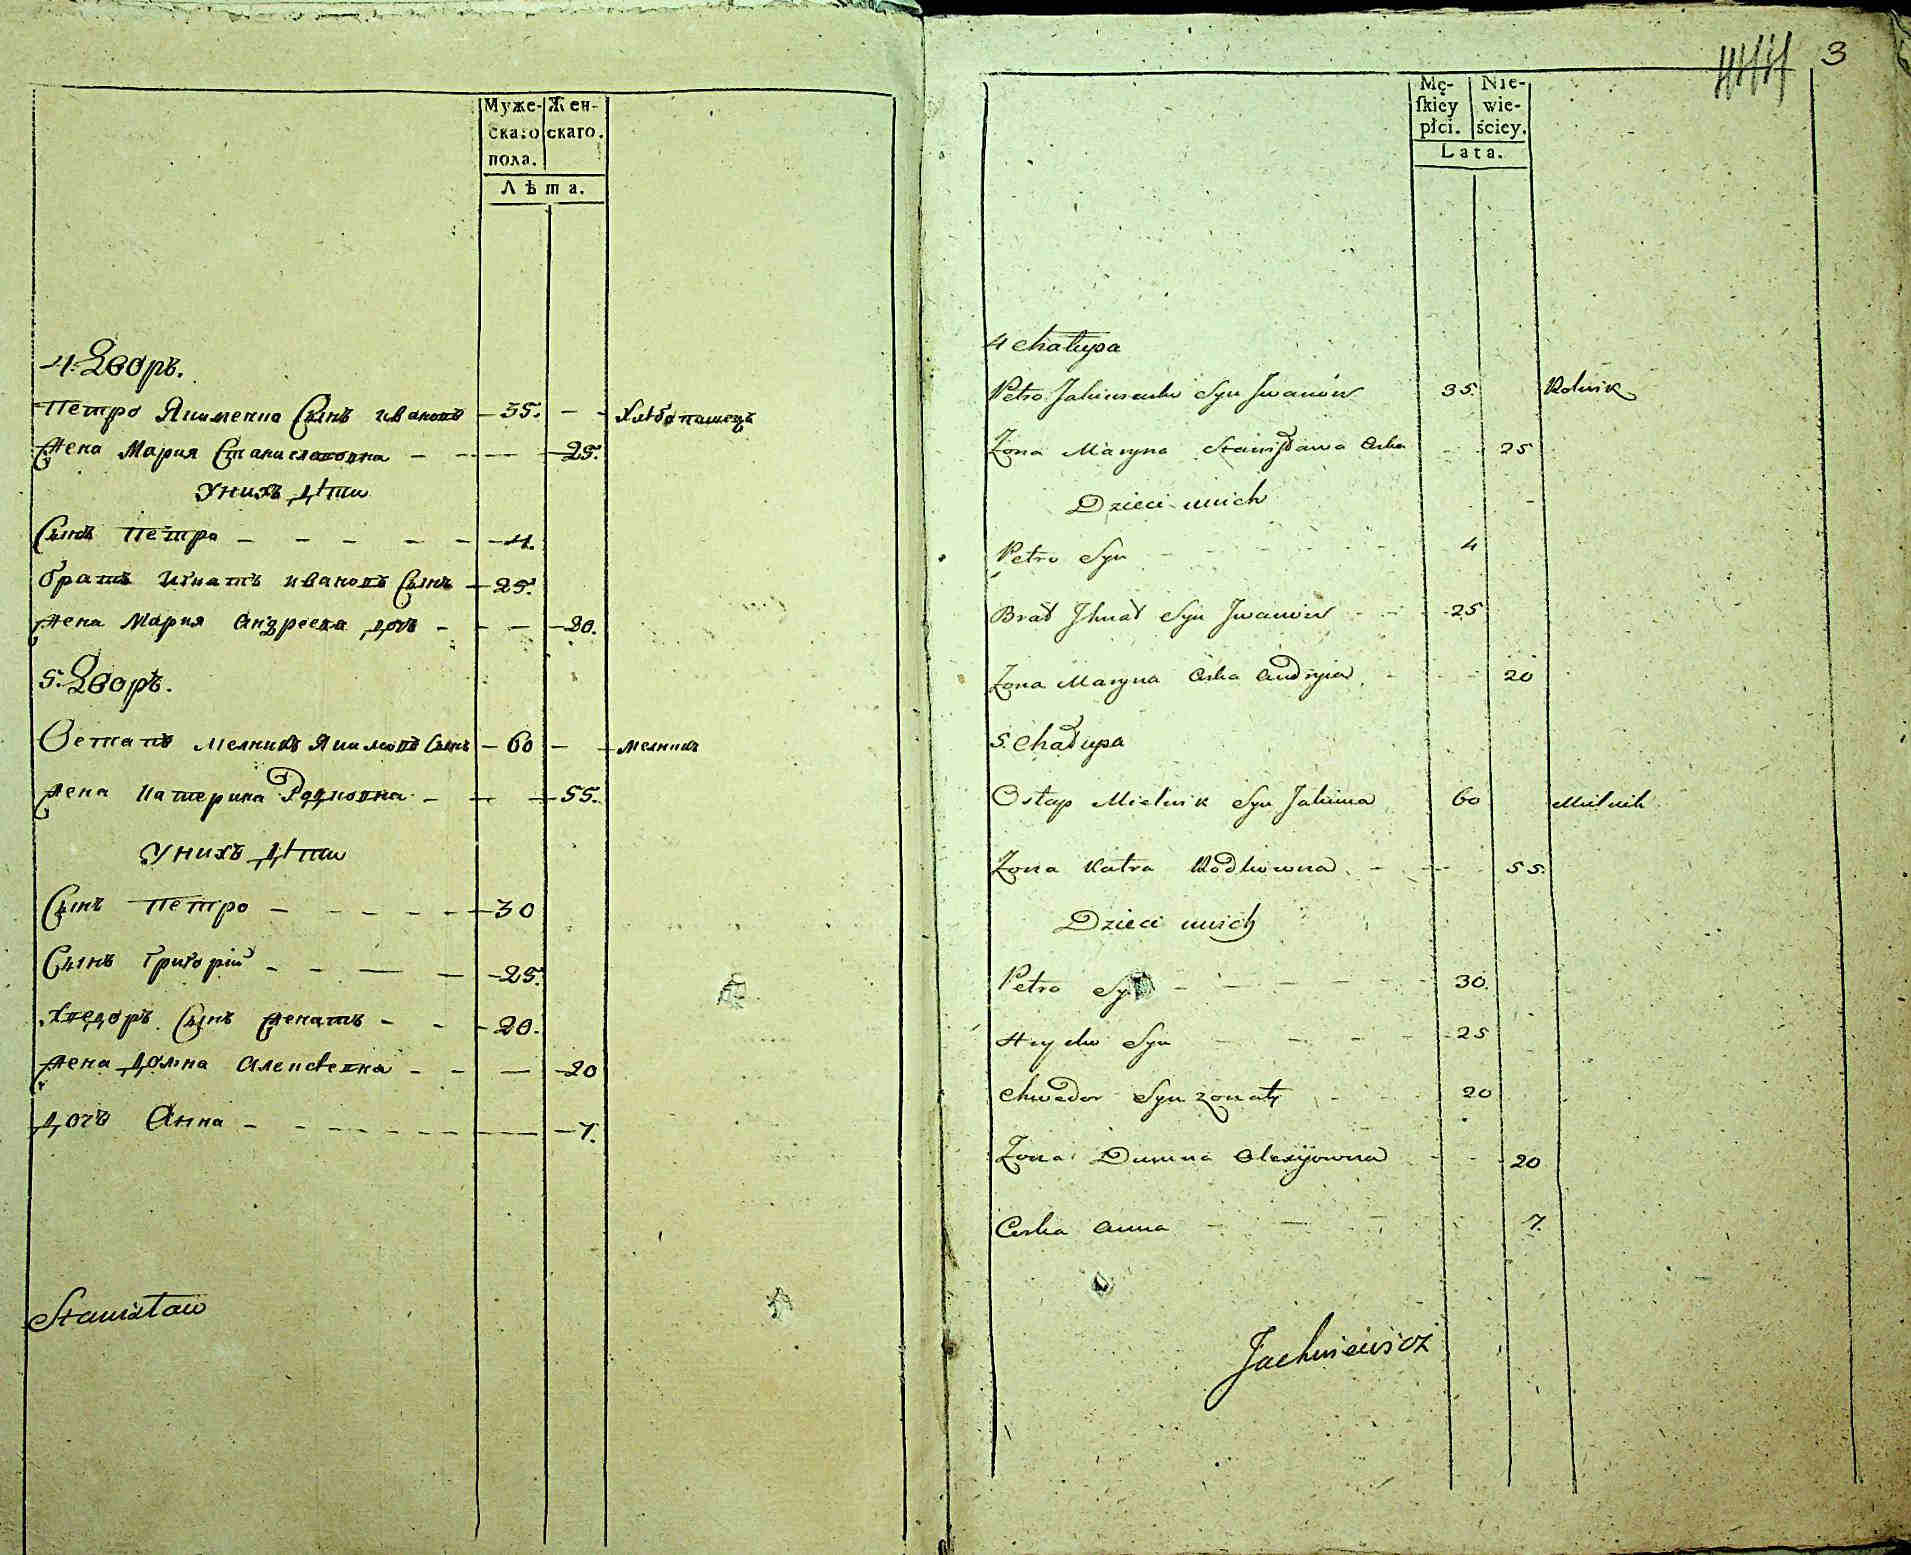 Муже- Жен-
скаго скаго.
пола.
Лѣта.
4. Дворъ.
Петро Якименко Сынъ Ивановъ 35. Хлѣбопашецъ
Жена Мария Станиславовна 25.
У нихъ дѣти
Сынъ Петро 4.
братъ Игнатъ Ивановъ Сынъ 25.
Жена Мария Андреева дочь 20.
5. Дворъ.
Остапъ Мелникъ Якимовъ Сынъ 60 мелникъ
Жена Катерина Родковна 55.
У нихъ дѣти
Сынъ Петро 30
Сынъ Григорій 25.
Хведоръ Сынъ женатъ 20.
Жена Домна Алексѣевна 20
дочь Анна 7.
Stanisław
3
Mę- Nie-
ſkiey wie-
płci. ściey.
Lata.
4 Chałupa
Petro Jakimenko Syn Jwanów 35. Rolnik
Żona Maryna Stanisława Corka 25
Dzieci unich
Petro Syn 4
Brat Jhnat Syn Jwanów 25
Żona Maryna Corka Andryia 20
5. Chałupa
Ostap Mielnik Syn Jakima 60 Mielnik
Żona Katra Rodkowna 55.
Dzieci unich
Petro Syn 30.
Hryćko Syn 25
Chwedor Syn żonaty 20
Żona Dumna Olexyiowna 20
Corka Anna 7.
Jachniewicz